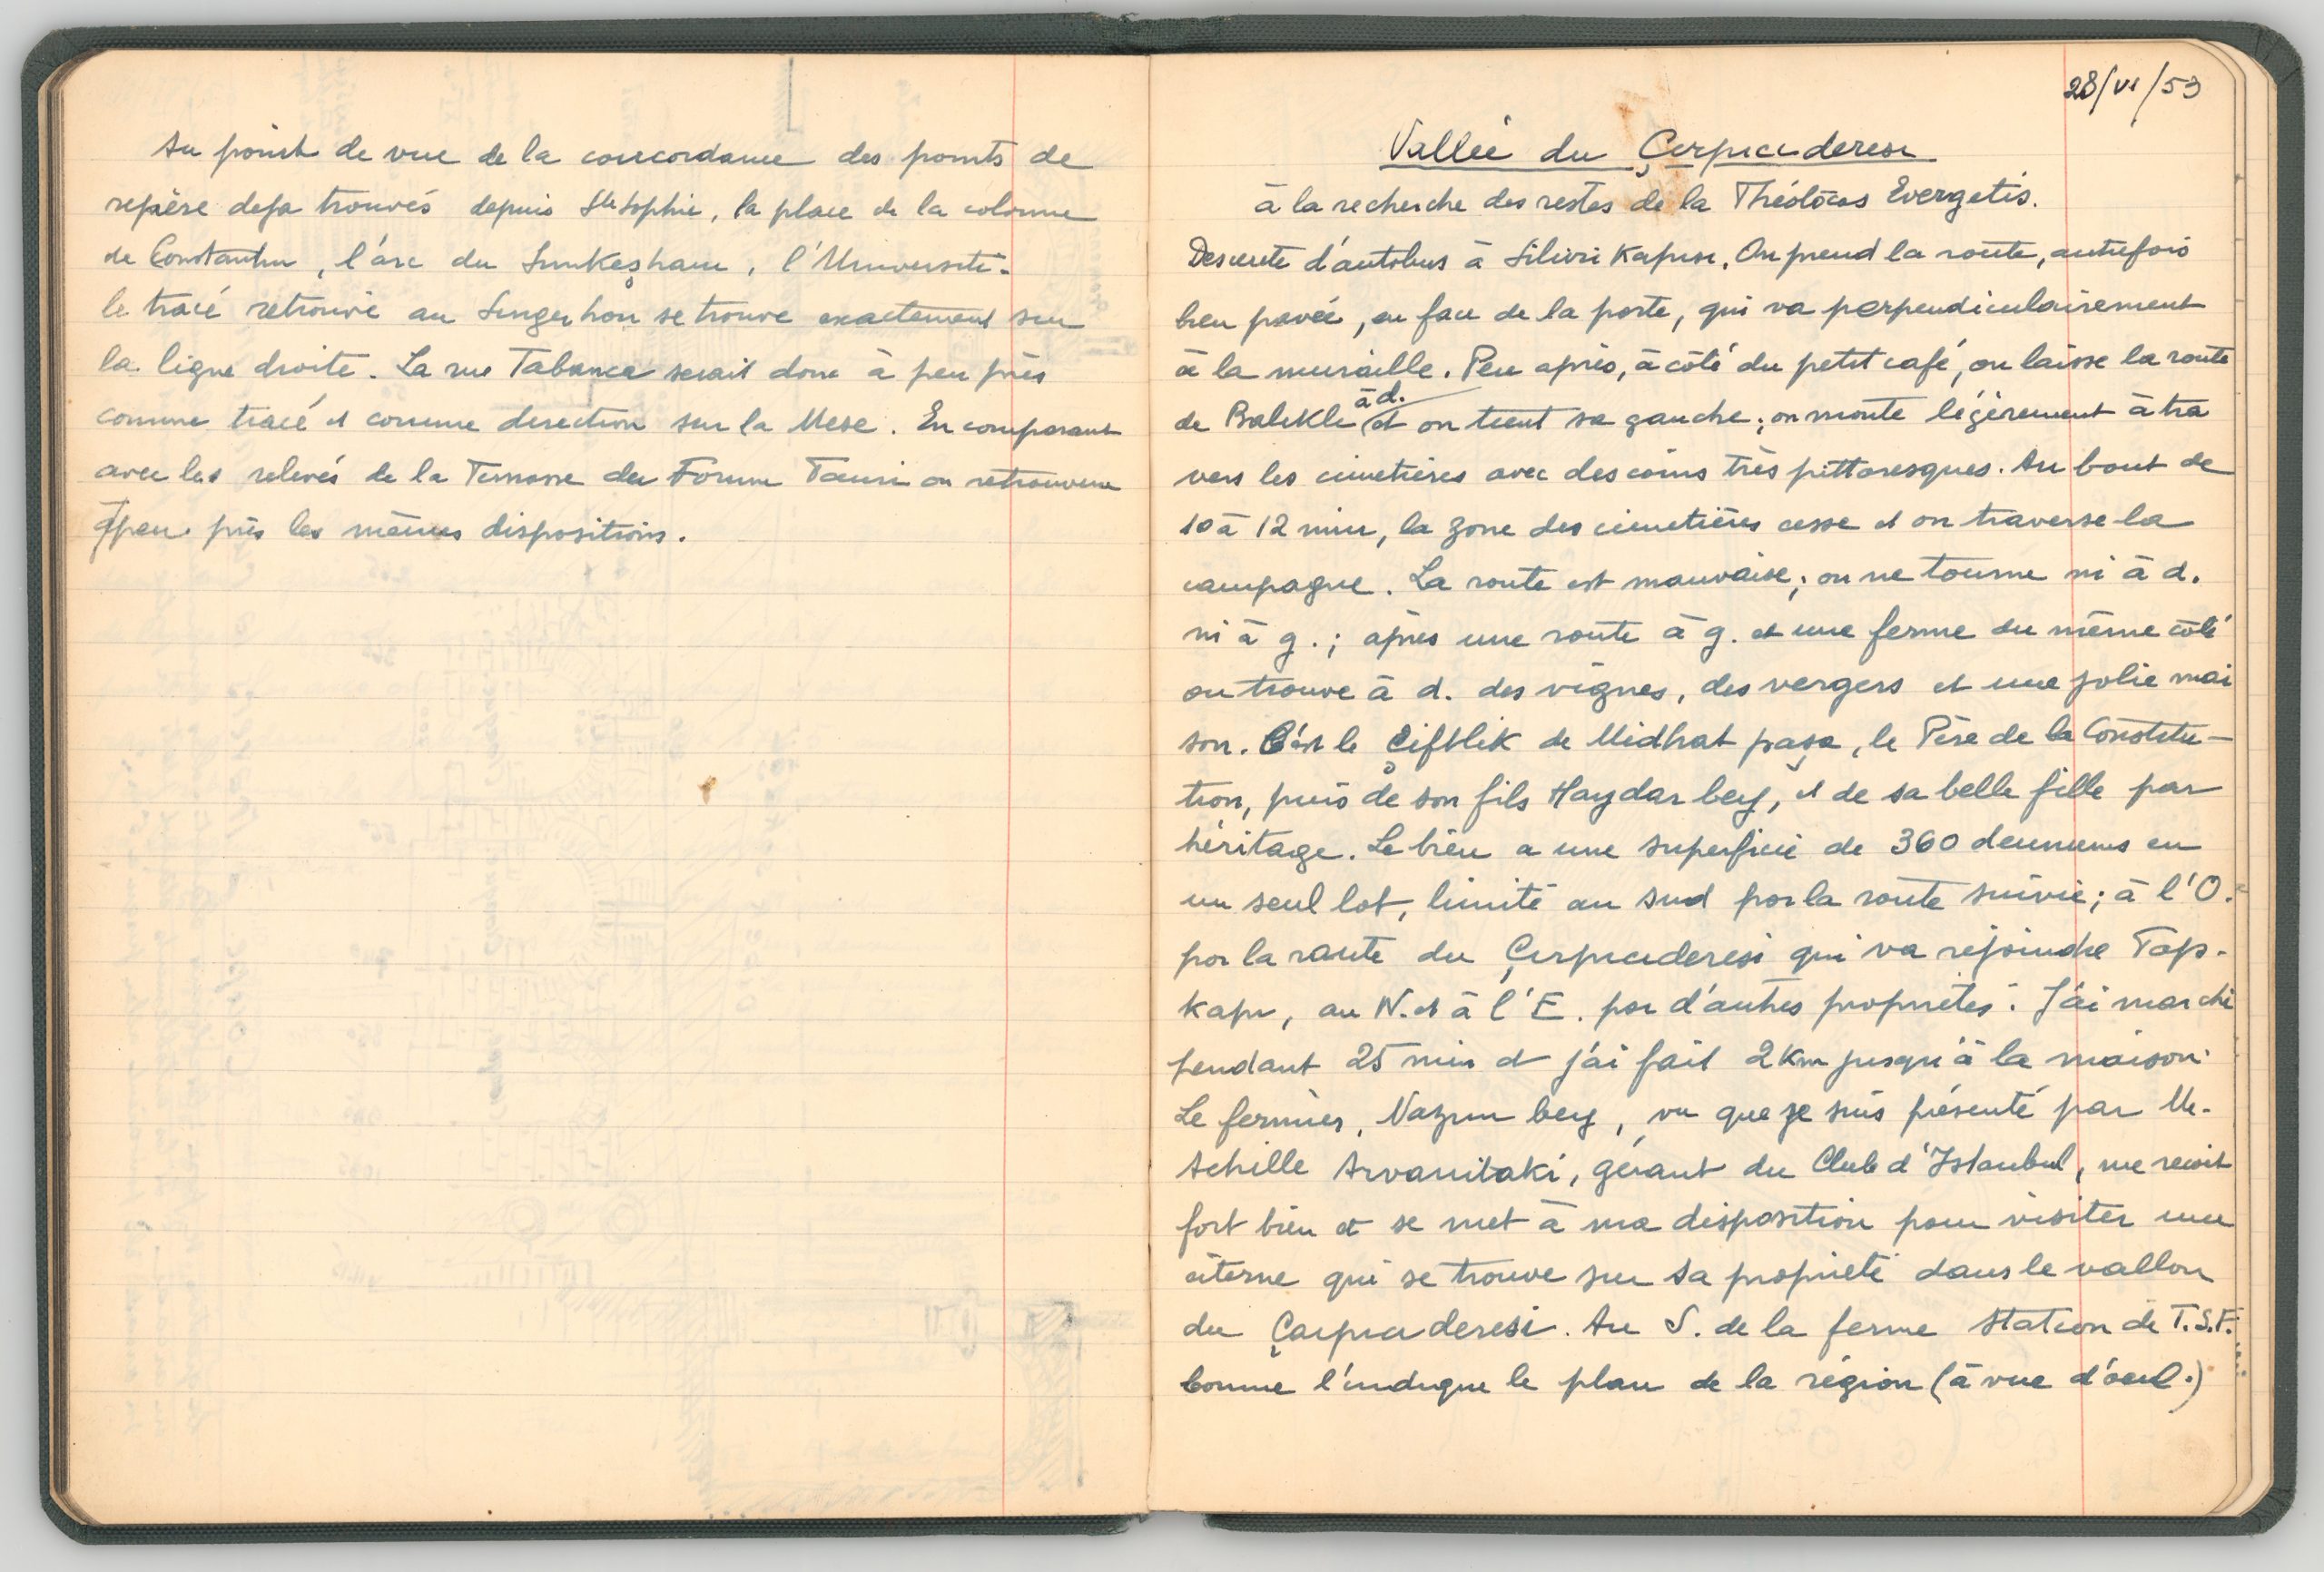 Au point de vue de la concordance des points de
repère deja trouvés depuis Ste Sophie, la place de la colonne
de Constantin, l'arc du Simkeşhane, l'Université.
le tracé retrouvé au se trouve exactement sur
la ligne droite. La rue serait donc à peu près
comme tracé et comme direction sur la Mese. En comparant
avec les relevés de la Terrasse du Forum Tauri on retrouve
à peu près les mêmes dispositions.
28/VI/53
Vallée du Çırpıcıderesi
à la recherche des restes de la Théotocos Evergetis.
Descente d'autobus à Silivri Kapısı. On prend la route, autrefois
bien pavée, en face de la porte, qui va perpendiculairement
à la muraille. Peu après, à côté du petit café, on laisse la route
de Balıklı à d. et on tient sa gauche; on monte légèrement à tra
vers les cimetières avec des coins très pittoresques. Au bout de
10 à 12 min, la zone des cimetières cesse et on traverse la
campagne. La route est mauvaise; on ne tourne ni à d.
ni à g.; après une route à g. et une ferme du même côté
on trouve à d. des vignes, des vergers et une jolie mai
son. C'est le Çiftlik de Midhat paşa, le Père de la Constitu-
tion, puis de son fils Haydar bey, et de sa belle fille par
héritage. Le bien a une superficie de 360 deunums en
un seul lot, limité au sud par la route suivie; à l'O.
par la route du Çırpıcıderesi qui va rejoindre Top-
kapı, au N. et à l'E. par d'autres propriétés. J'ai marché
pendant 25 min et j'ai fait 2 Km jusqu'à la maison.
Le fermier, Nazım bey, vu que je suis présenté par M.
Achille Arvanitaki, gérant du Club d'Istanbul, me reçoit
fort bien et se met à ma disposition pour visiter une
citerne qui se trouve sur sa propriété dans le vallon
du Çarpıcıderesi. Au S. de la ferme Station de T.S.F.
Comme l'indique le plan de la région (à vue d'œil.)